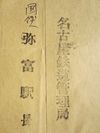 名古屋鉄道管理局
国鉄
弥富駅長